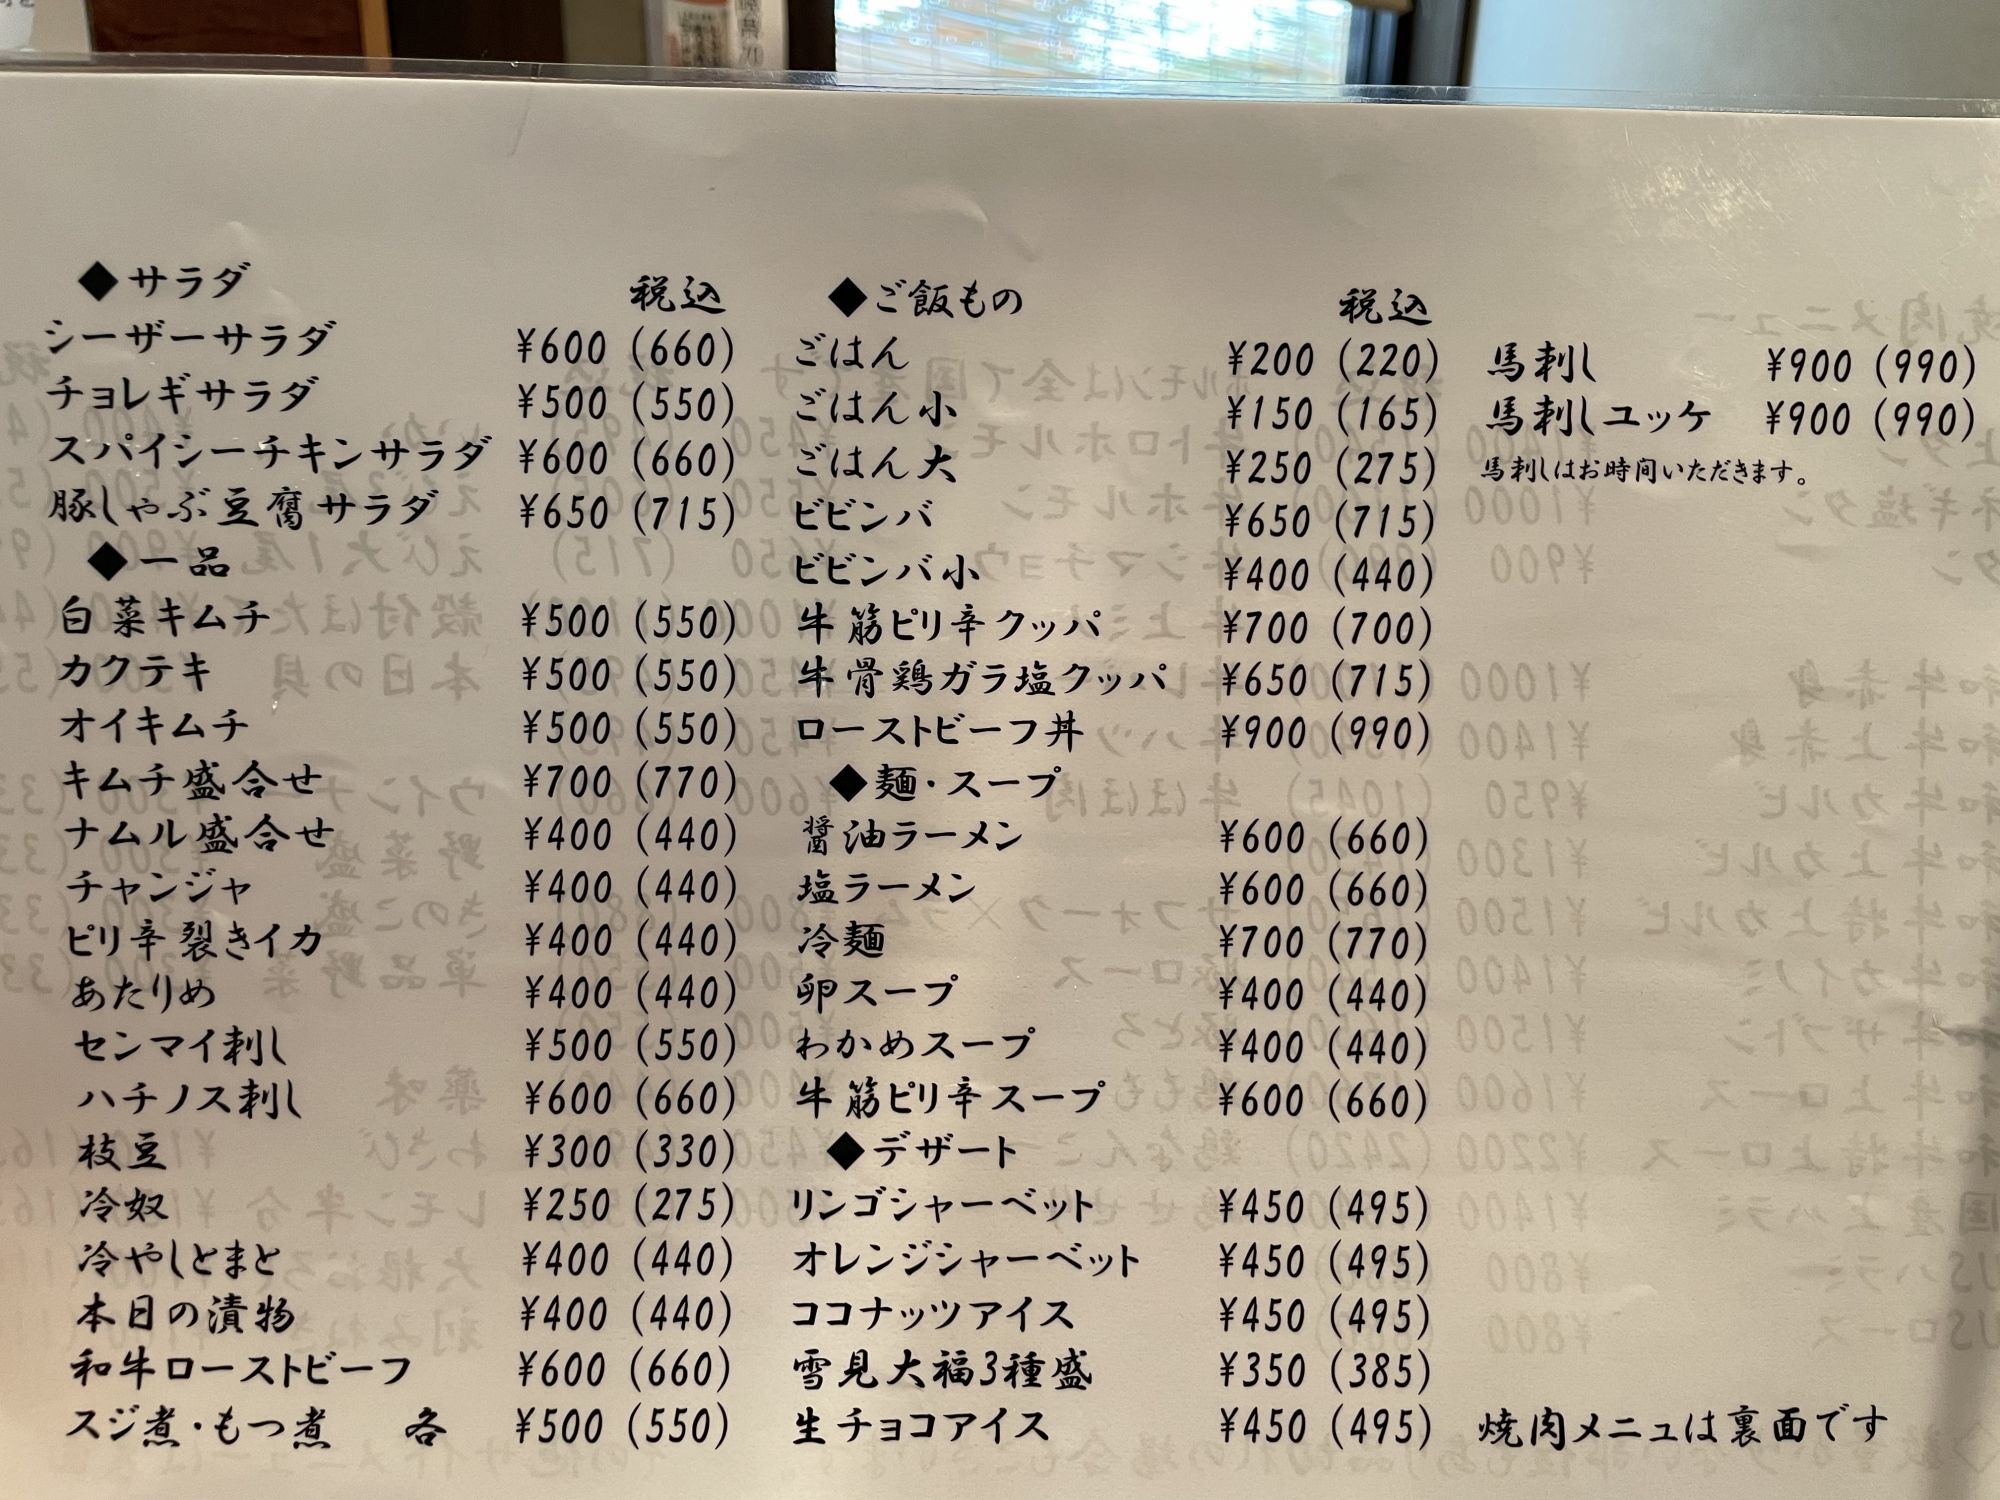 ◆サラダ 税込
シーザーサラダ ¥600 (660)
チョレギサラダ ¥500 (550)
スパイシーチキンサラダ ¥600 (660)
豚しゃぶ豆腐サラダ ¥650 (715)
◆一品
白菜キムチ ¥500 (550)
カクテキ ¥500 (550)
オイキムチ ¥500 (550)
キムチ盛合せ ¥700 (770)
ナムル盛合せ ¥400 (440)
チャンジャ ¥400 (440)
ピリ辛裂きイカ ¥400 (440)
あたりめ ¥400 (440)
センマイ刺し ¥500 (550)
ハチノス刺し ¥600 (660)
枝豆 ¥300 (330)
冷奴 ¥250 (275)
冷やしとまと ¥400 (440)
本日の漬物 ¥400 (440)
和牛ローストビーフ ¥600 (660)
スジ煮・もつ煮 各 ¥500 (550)
◆ご飯もの 税込
ごはん ¥200 (220)
ごはん小 ¥150 (165)
ごはん大 ¥250 (275)
ビビンバ ¥650 (715)
ビビンバ小 ¥400 (440)
牛筋ピリ辛クッパ ¥700 (700)
牛骨鶏ガラ塩クッパ ¥650 (715)
ローストビーフ丼 ¥900 (990)
◆麺・スープ
醤油ラーメン ¥600 (660)
塩ラーメン ¥600 (660)
冷麺 ¥700 (770)
卵スープ ¥400 (440)
わかめスープ ¥400 (440)
牛筋ピリ辛スープ ¥600 (660)
◆デザート
リンゴシャーベット ¥450 (495)
オレンジシャーベット ¥450 (495)
ココナッツアイス ¥450 (495)
雪見大福3種盛 ¥350 (385)
生チョコアイス ¥450 (495)
馬刺し ¥900 (990)
馬刺しユッケ ¥900 (990)
馬刺しはお時間いただきます。
焼肉メニュは裏面です